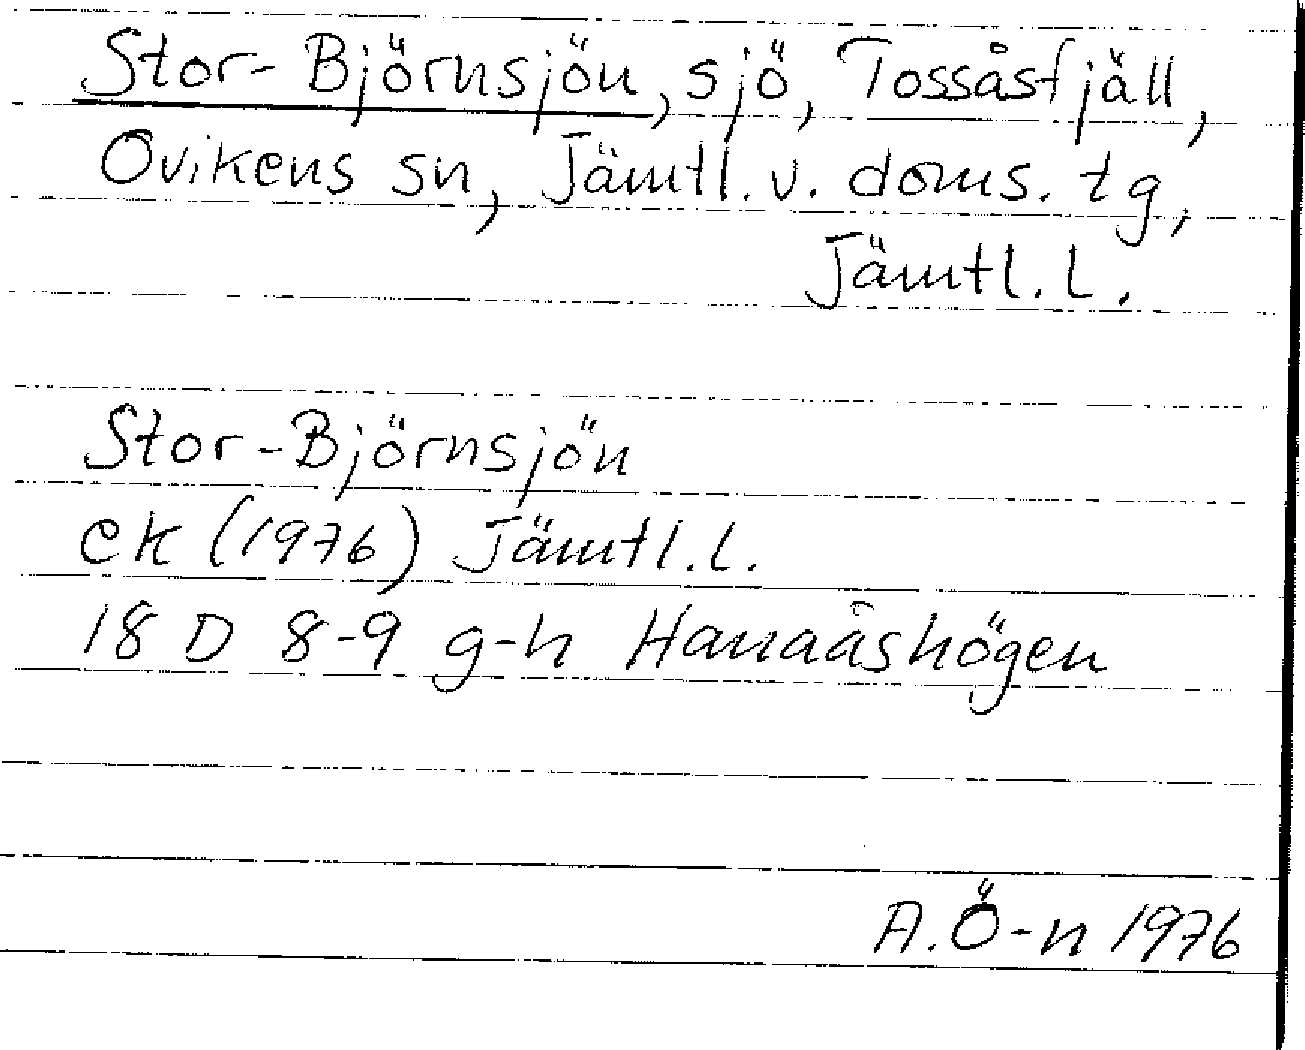 Stor-Björnsjön, sjö, Tossåsfjäll,
Ovikens sn, Jämtl. v. doms. tg,
Jämtl. L.
Stor-Björnsjön
ek (1976) Jämtl. L.
18 D 8-9 g-h Hanaåshögen
A. Ö-n 1976